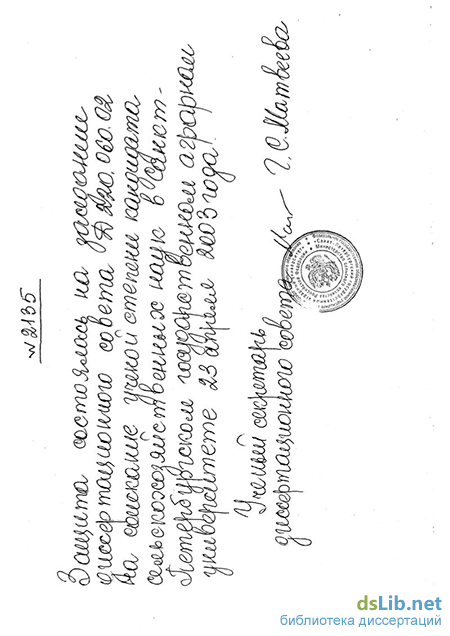 N 2135
Защита состоялась на заседание
диссертационного совета Д 220.060.02
на соискание ученой степени кандидата
сельскохозяйственных наук в Санкт-
Петербургском государственном аграрном
университете 23 апреля 2003 года.
Ученый секретарь
диссертационного совета Г.С. Матвеева
dsLib.net
библиотека диссертаций